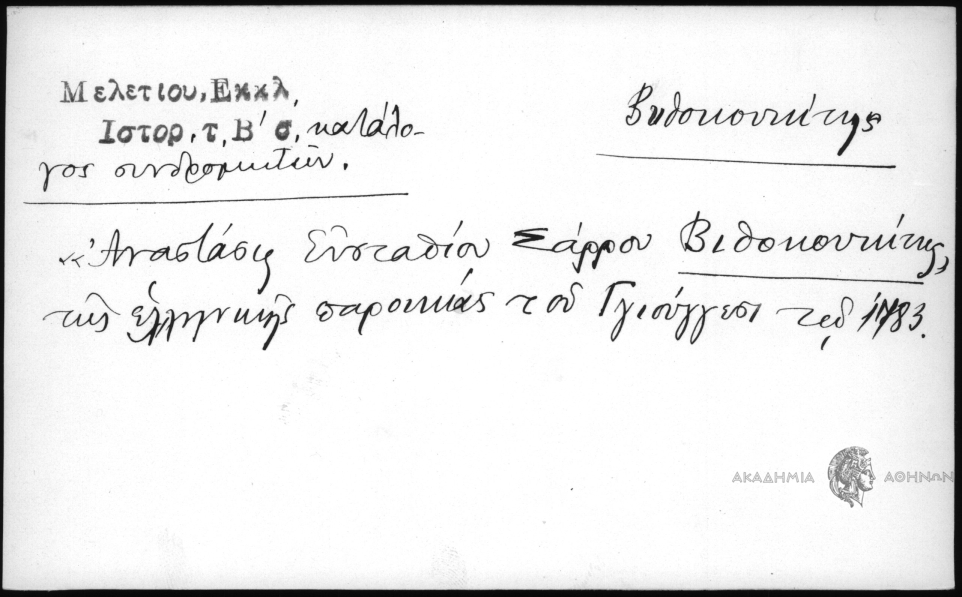 Μελετιου, Εκκλ,
Ιστορ, τ, Β' σ, κατάλο-
γος συνδρομητῶν.
Βυθοκουκίτης
«Ἀναστάσις Εὐσταθίου Σάρρου Βιθοκουκίτης,
τῆς ἑλληνικῆς παροικίας τοῦ Γγιούγγεσι τῷ 1783.
ΑΚΑΔΗΜΙΑ ΑΘΗΝΩΝ